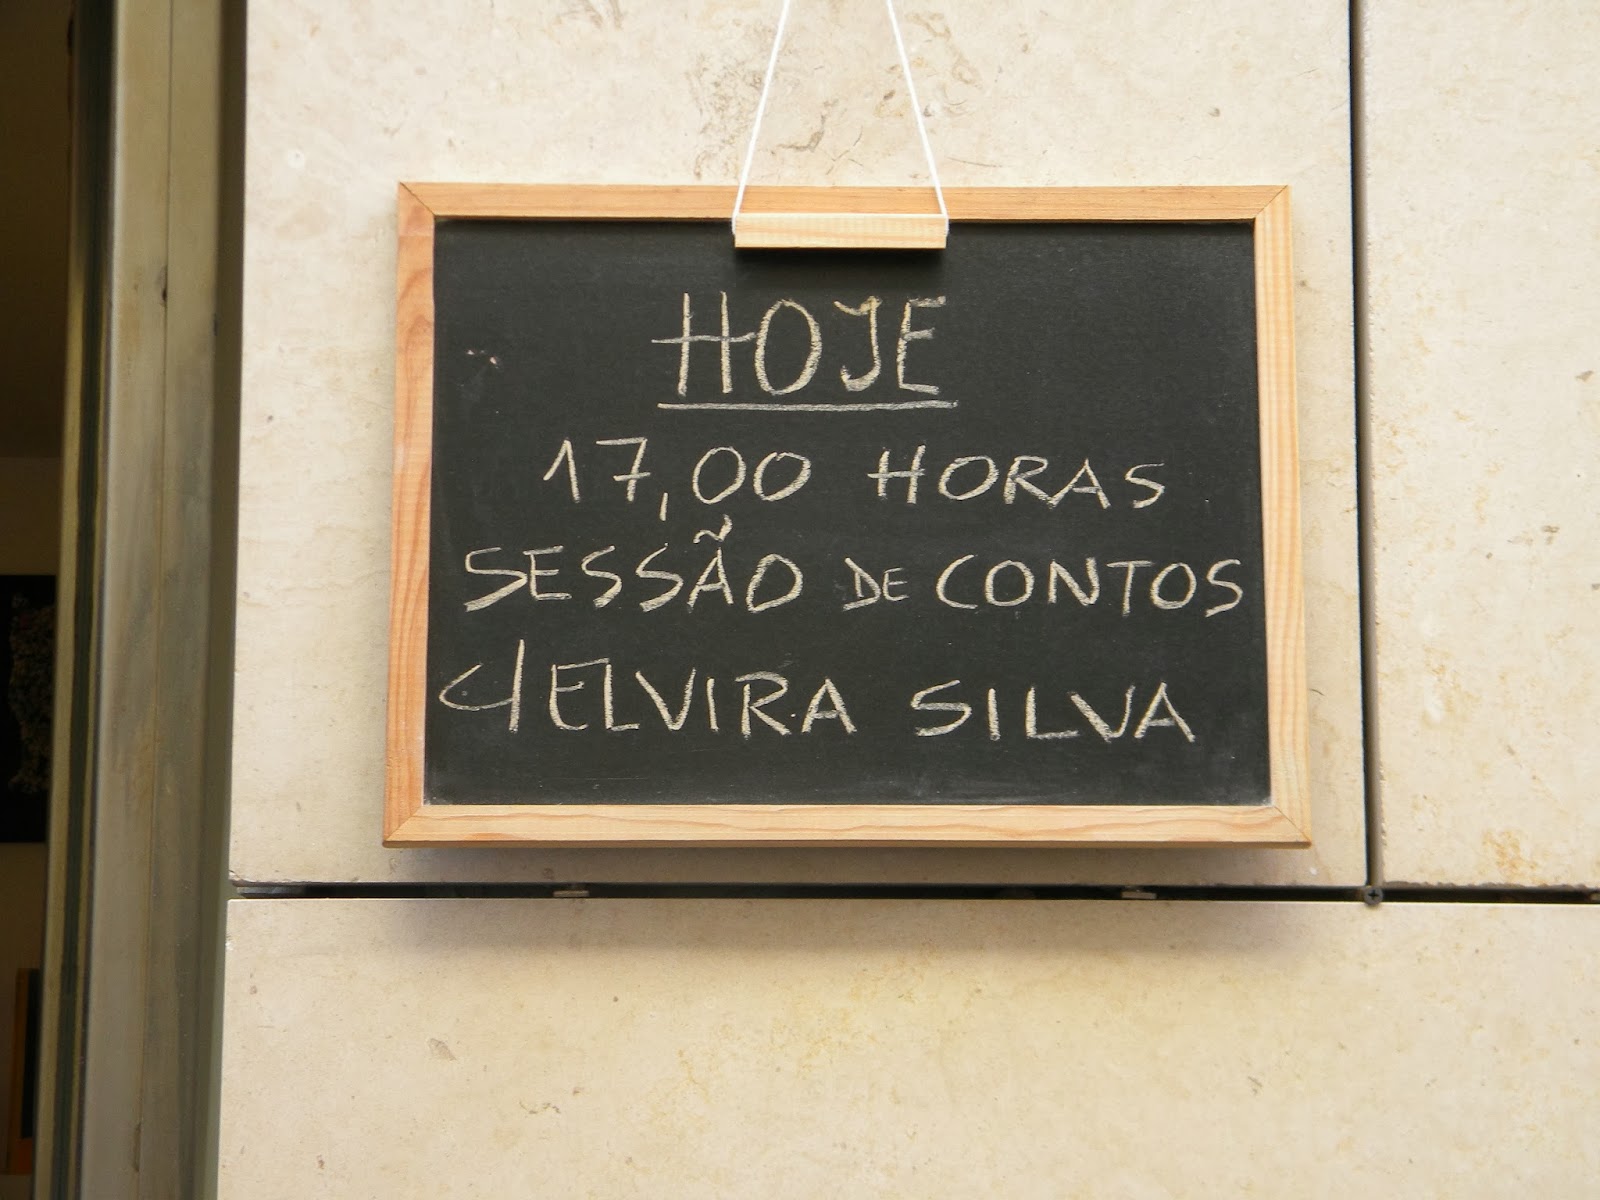 HOJE
17,00 HORAS
SESSÃO DE CONTOS
C/ELVIRA SILVA